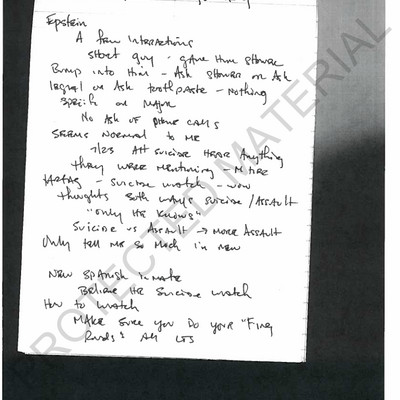 Epstein
A few Interactions
Short guy - gave him shower
Bump into him - Ask shower or Ask
legal or Ask toothpaste - nothing
specific or major
No Ask of phone calls
Seems normal to me
7/23 Att suicide hear Anything
they were mentioning -
- suicide watch -
thoughts both ways suicide/Assault
"only he knows"
Suicide vs Assault → more Assault
Only tell me so much in
New Spanish inmate
Believe he suicide watch
How to watch
Make sure you do your "Five
Rounds" All LTS
PROTECTED MATERIAL